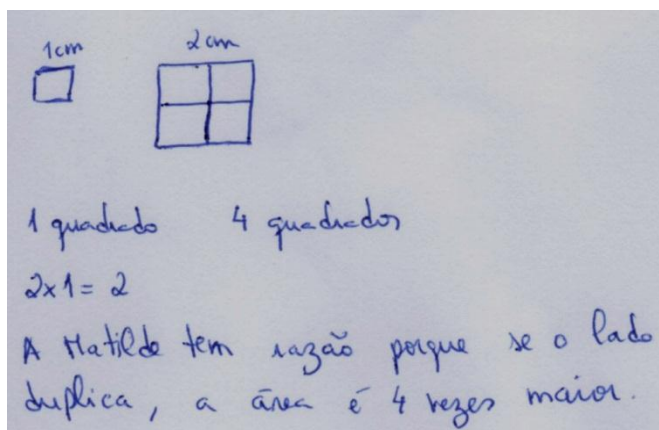 1cm 2cm
1 quadrado 4 quadrados
2x1 = 2
A Matilde tem razão porque se o lado
duplica, a área é 4 vezes maior.